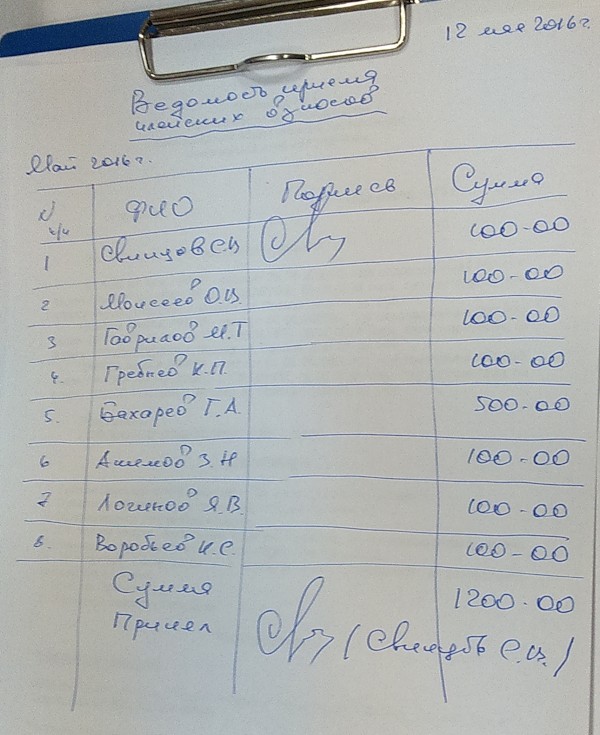 12 мая 2016г.
Ведомость приема
членских взносов
Май 2016г.
N п/п ФИО Подпись Сумма
1 Свинцов С.Ц. 100-00
2 Моисеев О.Ц. 100-00
3 Гаврилов М.Т 100-00
4. Гребнев К.П. 100-00
5. Бахарев Г.А. 500-00
6 Ашемов З.Н 100-00
7 Логинов Я.В. 100-00
8. Воробьев К.С. 100-00
Сумма 1200-00
Принял (Свинцов С.Ц.)